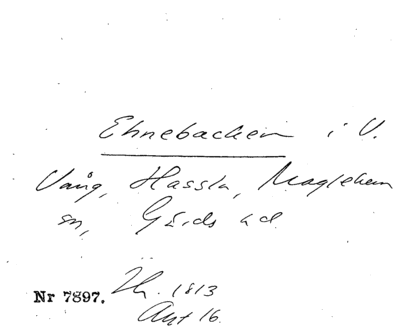 Ehnebacken i V.
Vång, Hassla, Maglehem
sn, Gärds hd
Nr 7897. Th. 1813
Akt 16.